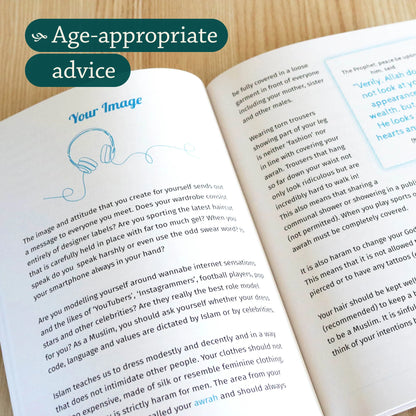 Age-appropriate
advice
Your Image
The image and attitude that you create for yourself sends out
a message to everyone you meet. Does your wardrobe consist
entirely of designer labels? Are you sporting the latest haircut
that is carefully held in place with far too much gel? When you
speak do you speak harshly or even use the odd swear word? Is
your smartphone always in your hand?
Are you modelling yourself around wannabe internet sensations
and the likes of 'YouTubers', 'Instagrammers', football players, pop
stars and other celebrities? Are they really the best role model
for you? As a Muslim, you should ask yourself whether your dress
code, language and values are dictated by Islam or by celebrities.
Islam teaches us to dress modestly and decently and in a way
that does not intimidate other people. Your clothes should not
be too expensive, made of silk or resemble feminine clothing,
is strictly haram for men. The area from your
called your awrah and should always
be fully covered in a loose
garment in front of everyone
including your mother, sister
and other males.
Wearing torn trousers
showing part of your leg
is neither 'fashion' nor
in line with covering your
awrah. Trousers that hang
so far down your waist not
only look ridiculous but are
incredibly hard to walk in!
This also means that sharing a
communal shower or showering in a pub
(not permitted). When you play sports
awrah must be completely covered.
It is also haram to change your God
This means that it is not allowed
pierced or to have any tattoos
Your hair should be kept well
(recommended) to keep a
to be a Muslim. It is sinful
think of your intention
The Prophet, peace be upon
him, said
"Verily Allah
not look at yo
appearance
wealth, bu
He looks
hearts